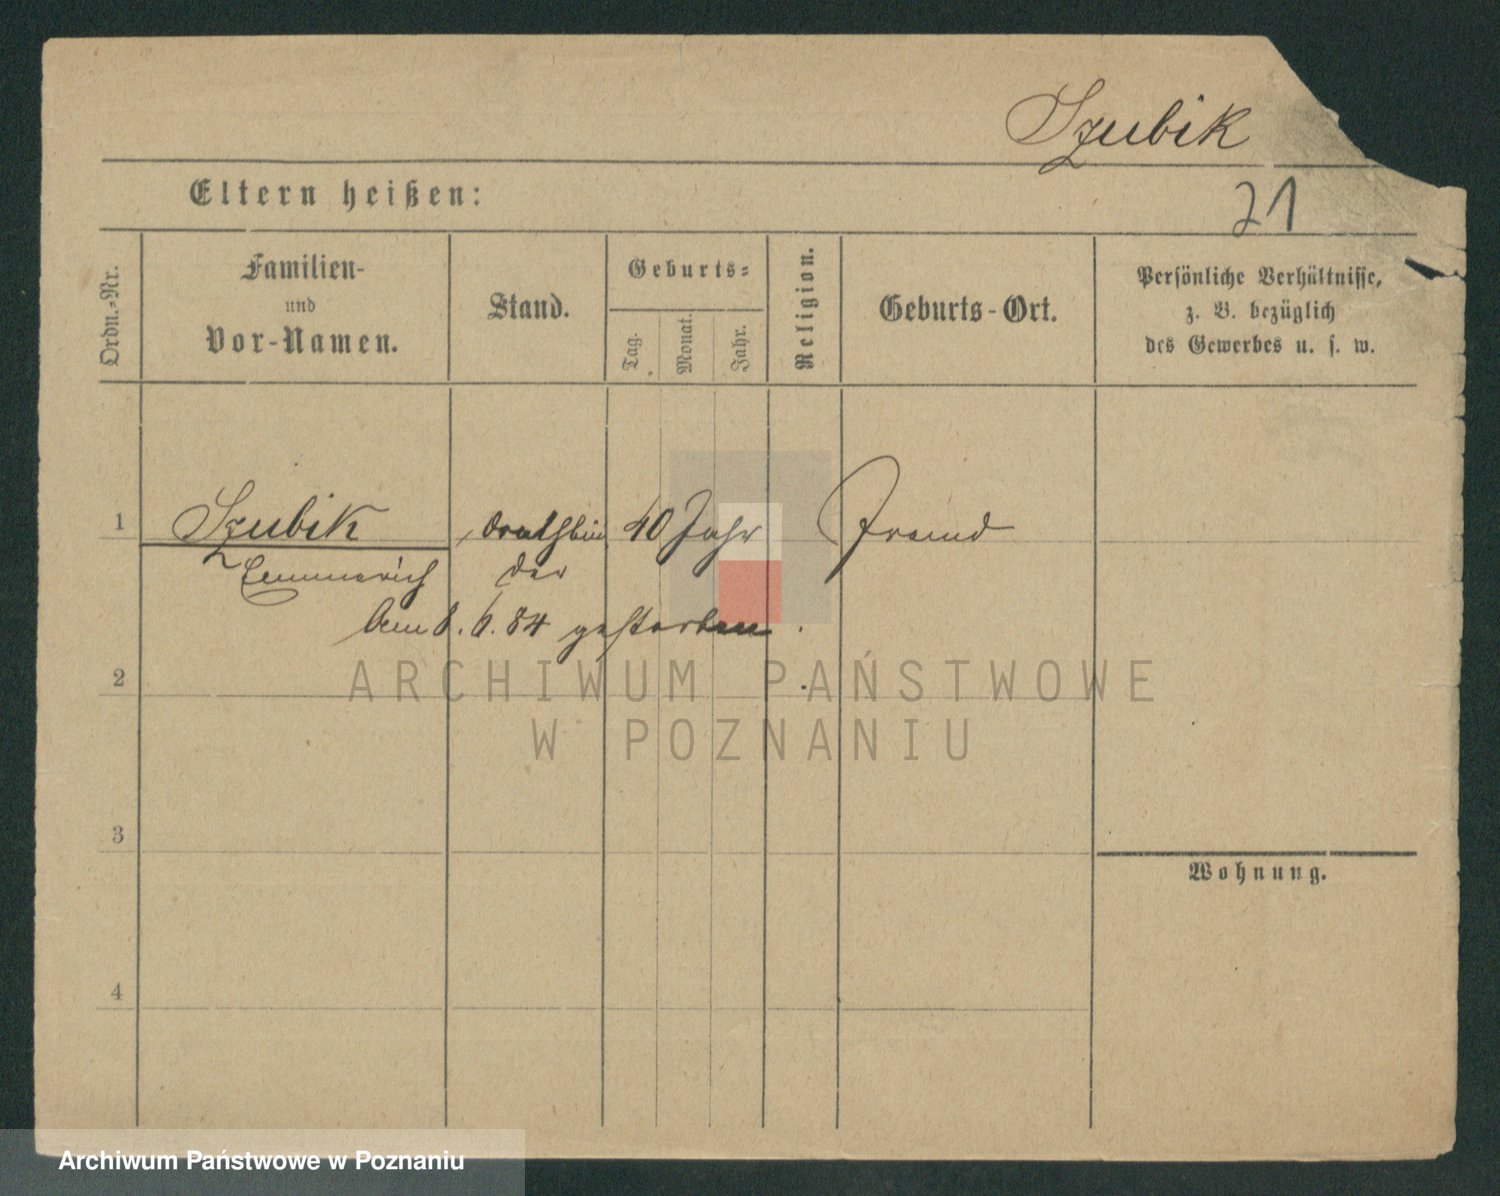 Szubik
Eltern heißen:
21
Ordn.-Nr.
Familien-
und
Vor-Namen.
Stand.
Geburts-
Tag.
Monat.
Jahr.
Religion.
Geburts-Ort.
Persönliche Verhältnisse,
z. B. bezüglich
des Gewerbes u. s. w.
1 Szubik Drathbin 40 Jahr Fremd
Emmerich der
Am 8. 6. 84 gestorben.
ARCHIWUM PAŃSTWOWE
W POZNANIU
2
3
Wohnung.
4
Archiwum Państwowe w Poznaniu